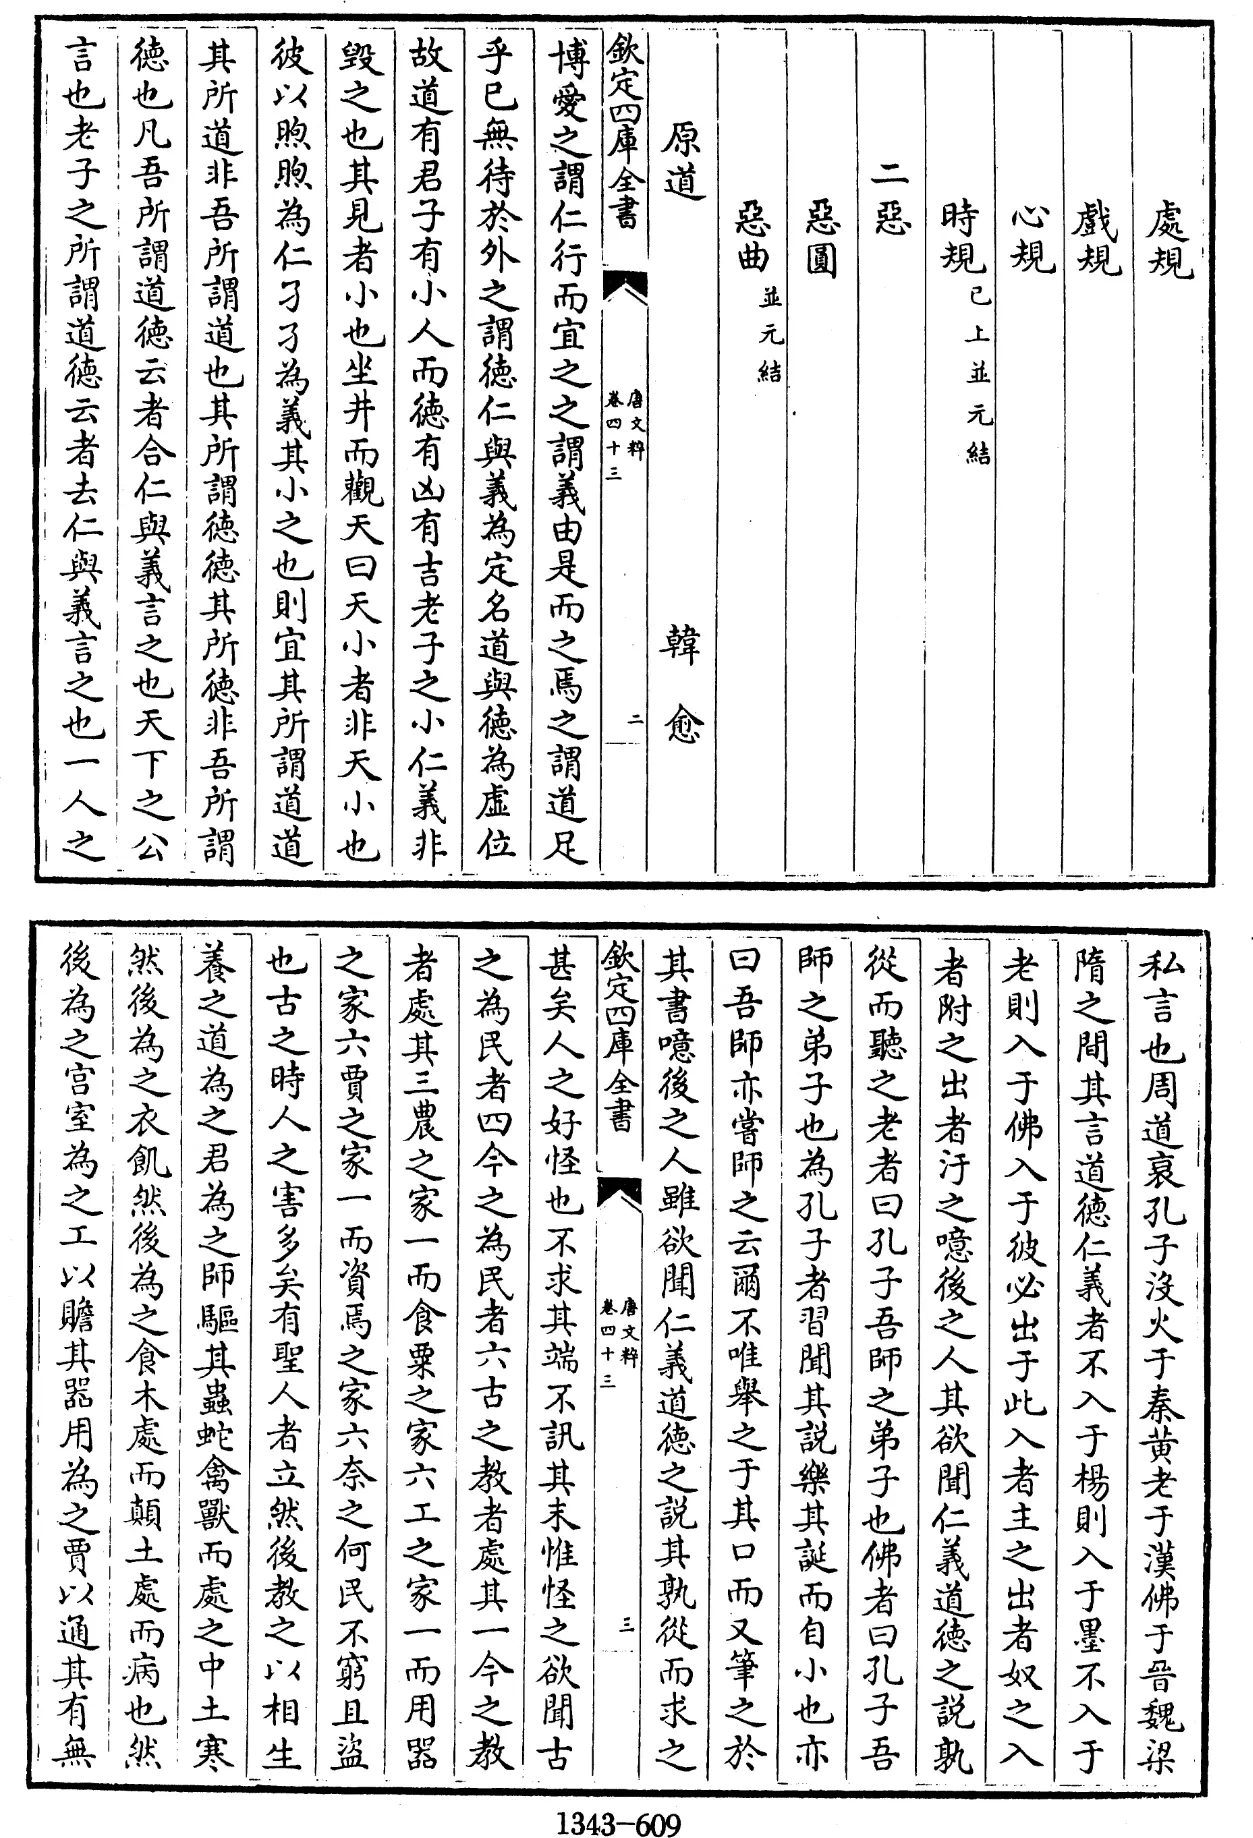 處規
戲規
心規
時規已上並元結
二惡
惡圓
惡曲並元結
原道 韓愈
欽定四庫全書 唐文粹 卷四十三 二
博愛之謂仁行而宜之之謂義由是而之焉之謂道足
乎已無待於外之謂德仁與義為定名道與德為虛位
故道有君子有小人而德有凶有吉老子之小仁義非
毀之也其見者小也坐井而觀天曰天小者非天小也
彼以煦煦為仁孑孑為義其小之也則宜其所謂道道
其所道非吾所謂道也其所謂德德其所德非吾所謂
德也凡吾所謂道德云者合仁與義言之也天下之公
言也老子之所謂道德云者去仁與義言之也一人之
私言也周道衰孔子沒火于秦黄老于漢佛于晉魏梁
隋之間其言道德仁義者不入于楊則入于墨不入于
老則入于佛入于彼必出于此入者主之出者奴之入
者附之出者汙之噫後之人其欲聞仁義道德之說孰
從而聽之老者曰孔子吾師之弟子也佛者曰孔子吾
師之弟子也為孔子者習聞其說樂其誕而自小也亦
曰吾師亦嘗師之云爾不唯舉之于其口而又筆之於
其書噫後之人雖欲聞仁義道德之說其孰從而求之
欽定四庫全書 唐文粹 卷四十三 三
甚矣人之好怪也不求其端不訊其末惟怪之欲聞古
之為民者四今之為民者六古之教者處其一今之教
者處其三農之家一而食粟之家六工之家一而用器
之家六賈之家一而資焉之家六奈之何民不窮且盜
也古之時人之害多矣有聖人者立然後教之以相生
養之道為之君為之師驅其蟲蛇禽獸而處之中土寒
然後為之衣飢然後為之食木處而顛土處而病也然
後為之宫室為之工以贍其器用為之賈以通其有無
1343-609